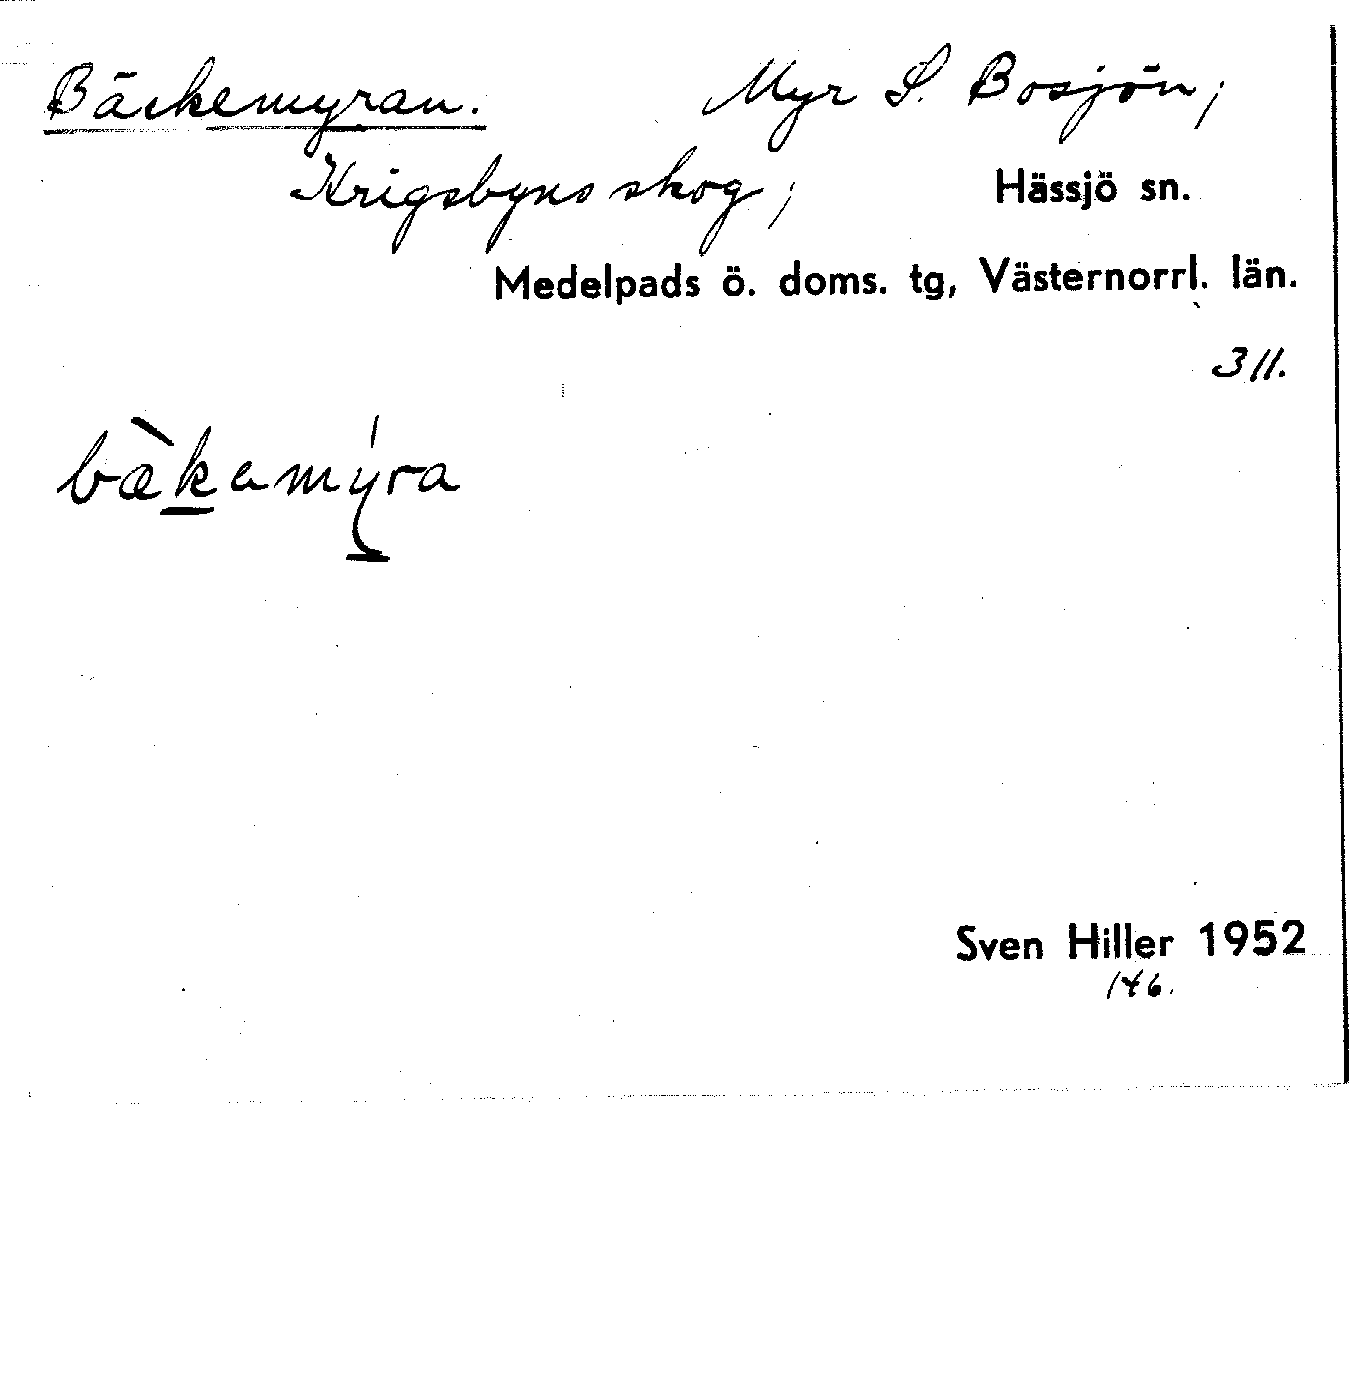 Bäckemyran. Myr S. Bosjön;
Krigsbyns skog; Hässjö sn.
Medelpads ö. doms. tg, Västernorrl. län.
311.
bæ̀kamýra
Sven Hiller 1952
146.